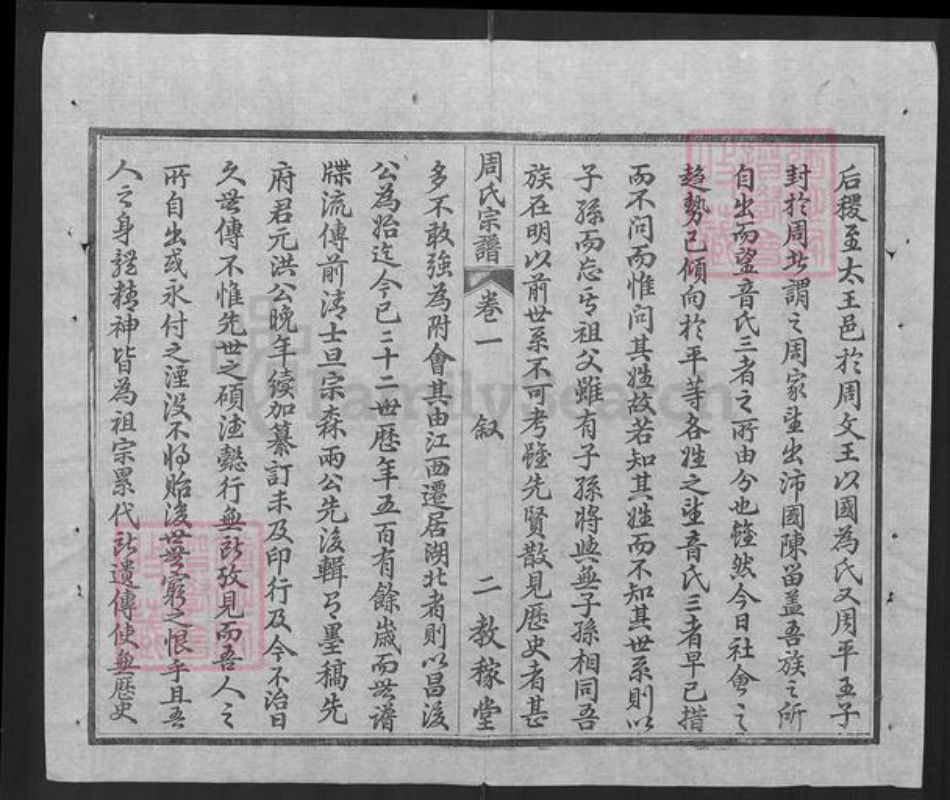 后稷至太王邑於周文王以國為氏又周平王子
封於周此謂之周家望出沛國陳留蓋吾族之所
自出而望音氏三者之所由分也雖然今日社會之
趨勢已傾向於平等各姓之望音氏三者早已措
而不問而惟問其姓故若知其姓而不知其世系則以
子孫而忘其祖父雖有子孫將與無子孫相同吾
族在明以前世系不可考雖先賢散見歷史者甚
周氏宗譜 卷一 叙 二 教稼堂
多不敢強為附會其由江西遷居湖北者則以昌後
公為始迄今已二十二世歷年五百有餘歲而世譜
牒流傳前清士旦宗森兩公先後輯有墨稿先
府君元洪公晚年續加纂訂未及印行及今不治日
久無傳不惟先世之碩德懿行無所攷見而吾人之
所自出或永付之湮沒不將貽後世無窮之恨乎且吾
人之身體精神皆為祖宗累代所遺傳使無歷史